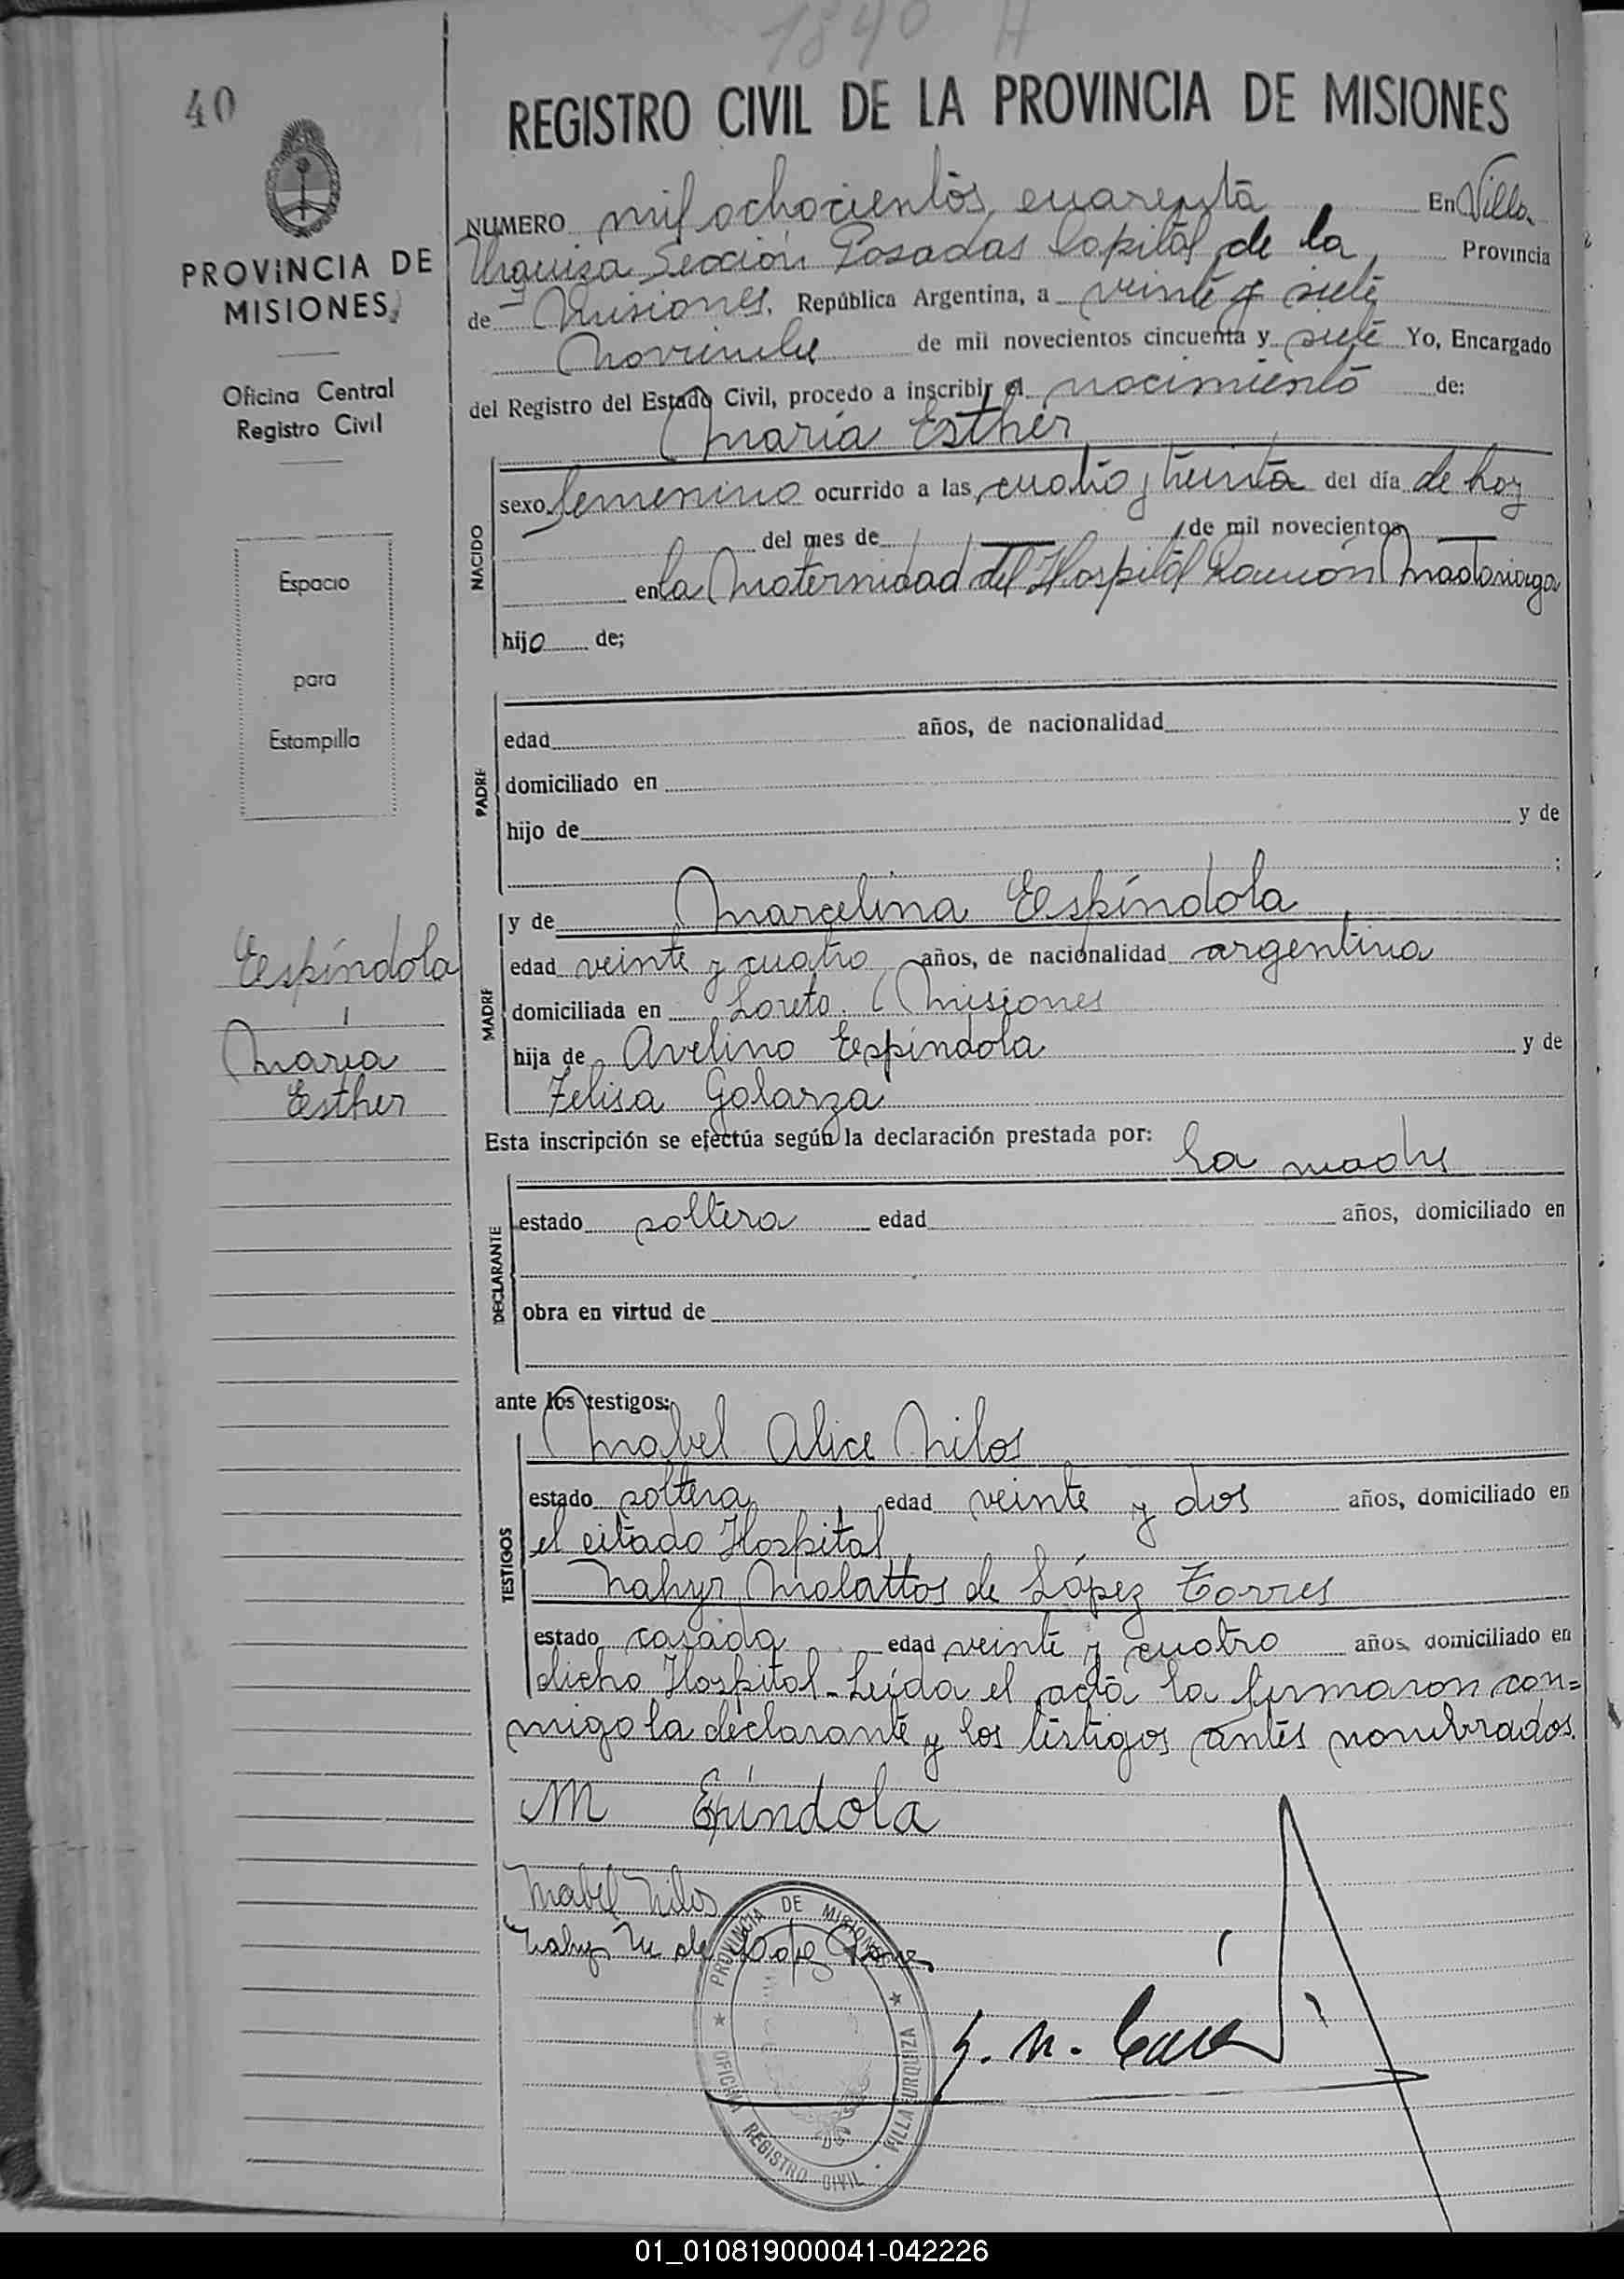 1840 A
40
REGISTRO CIVIL DE LA PROVINCIA DE MISIONES
PROVINCIA DE
MISIONES
Oficina Central
Registro Civil
Espacio
para
Estampilla
Espíndola
María
Esther
NUMERO mil ochocientos cuarenta En Villa
Urquiza Sección Posadas Capital de la Provincia
de Misiones, República Argentina, a veinte y siete
Noviembre de mil novecientos cincuenta y siete Yo, Encargado
del Registro del Estado Civil, procedo a inscribir el nacimiento de:
María Esther
NACIDO
sexo femenino ocurrido a las cuatro y treinta del día de hoy
del mes de de mil novecientos
en la Maternidad del Hospital Ramón Madariaga
hija de;
PADRE
edad años, de nacionalidad
domiciliado en
hijo de y de
;
MADRE
y de Marcelina Espíndola
edad veinte y cuatro años, de nacionalidad argentina
domiciliada en Loreto. Misiones
hija de Avelino Espíndola y de
Felisa Galarza
Esta inscripción se efectúa según la declaración prestada por: la madre
DECLARANTE
estado soltera edad años, domiciliado en
obra en virtud de
ante los testigos:
TESTIGOS
Mabel Alice Nilos
estado soltera edad veinte y dos años, domiciliado en
el citado Hospital
Nahyr Malattos de López Torres
estado casada edad veinte y cuatro años, domiciliado en
dicho Hospital - Leída el acta la firmaron con=
migo la declarante y los testigos antes nombrados.
M Epíndola
Mabel Nilos
Nahyr M de López Torres
PROVINCIA DE MISIONES
OFICINA REGISTRO CIVIL · VILLA URQUIZA
01_010819000041-042226